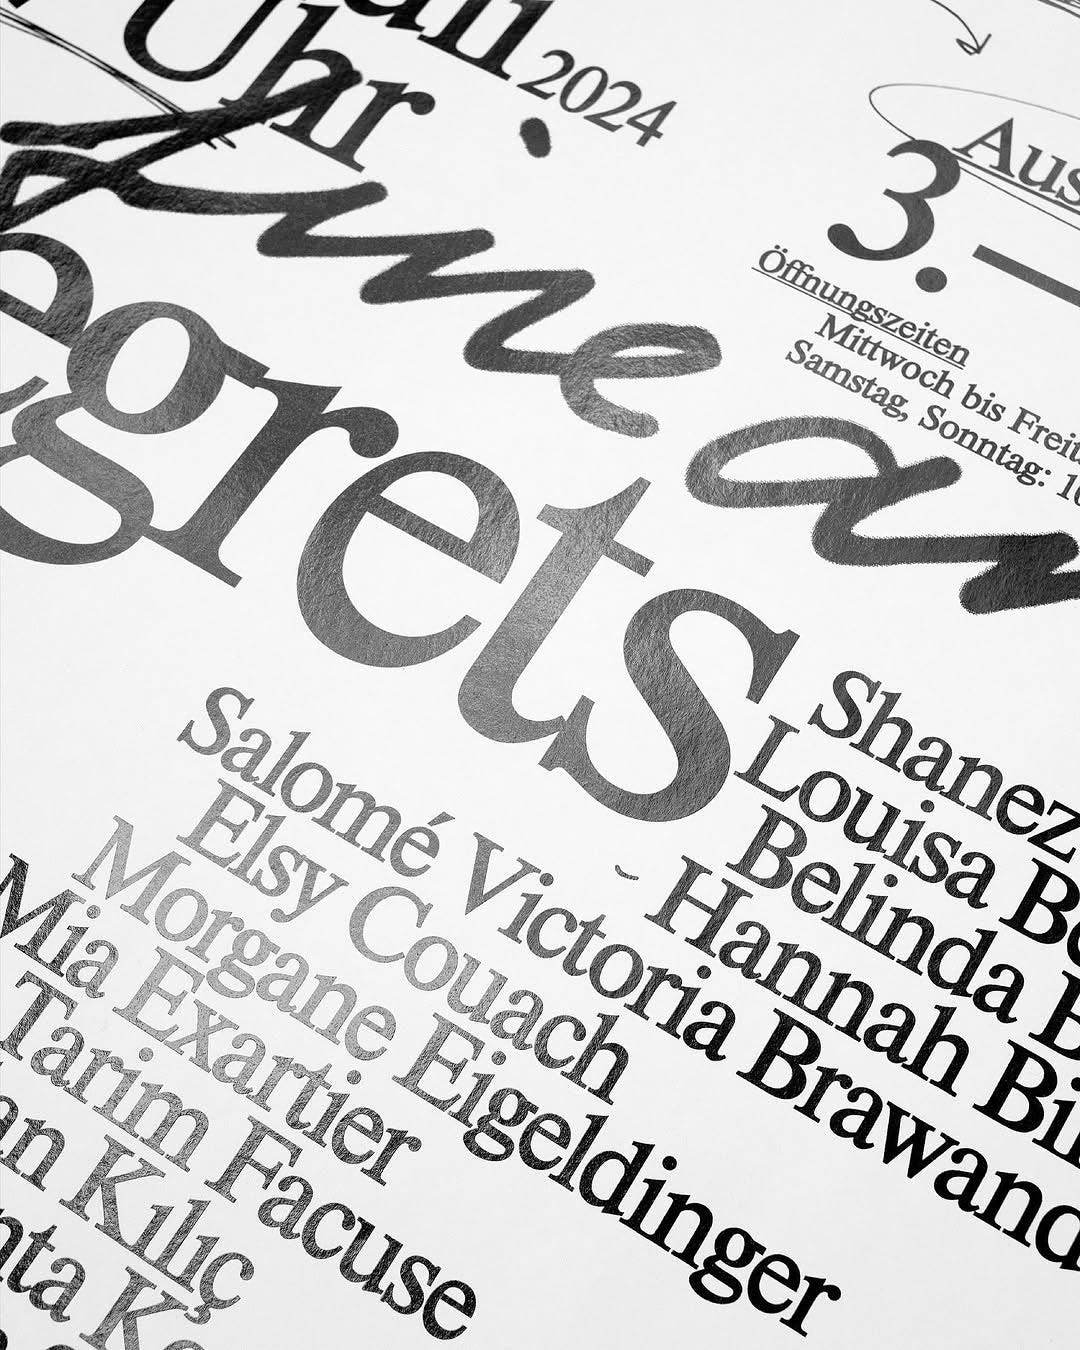 2024
Uhr
Aus
3. –
Öffnungszeiten
Mittwoch bis Freit
Samstag, Sonntag: 10
egrets
Shanez
Louisa B
Belinda B
- Hannah Bi
Salomé Victoria Brawand
Elsy Couach
Morgane Eigeldinger
Mia Exartier
Tarim Facuse
an Kılıç
nta K